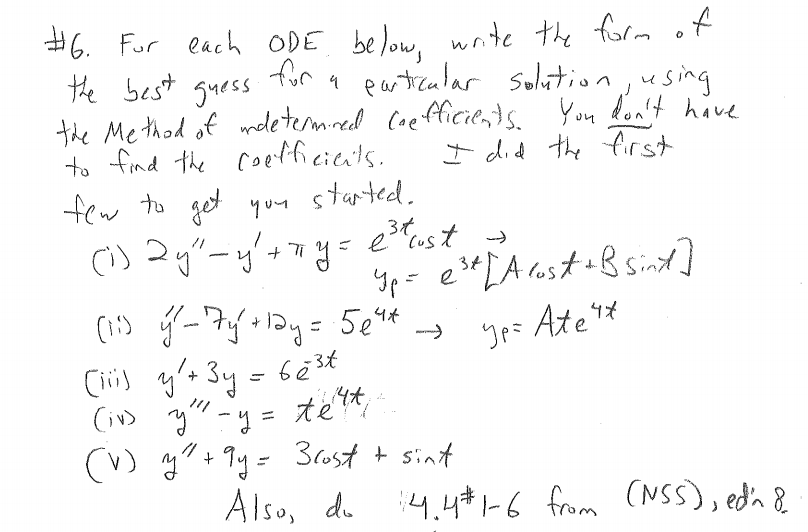 #6. For each ODE below, write the form of
the best guess for a particular solution, using
the Method of undetermined coefficients. You don't have
to find the coefficients. I did the first
few to get you started.
(i) 2y'' - y' + πy = e^{3t}cost →
yp = e^{3t}[A cost + B sint]
(ii) y'' - 7y' + 12y = 5e^{4t} → yp = Ate^{4t}
(iii) y' + 3y = 6e^{-3t}
(iv) y''' - y = te^{4t}
(v) y'' + 9y = 3cost + sint
Also, do 4.4 #1-6 from (NSS), ed'n 8.